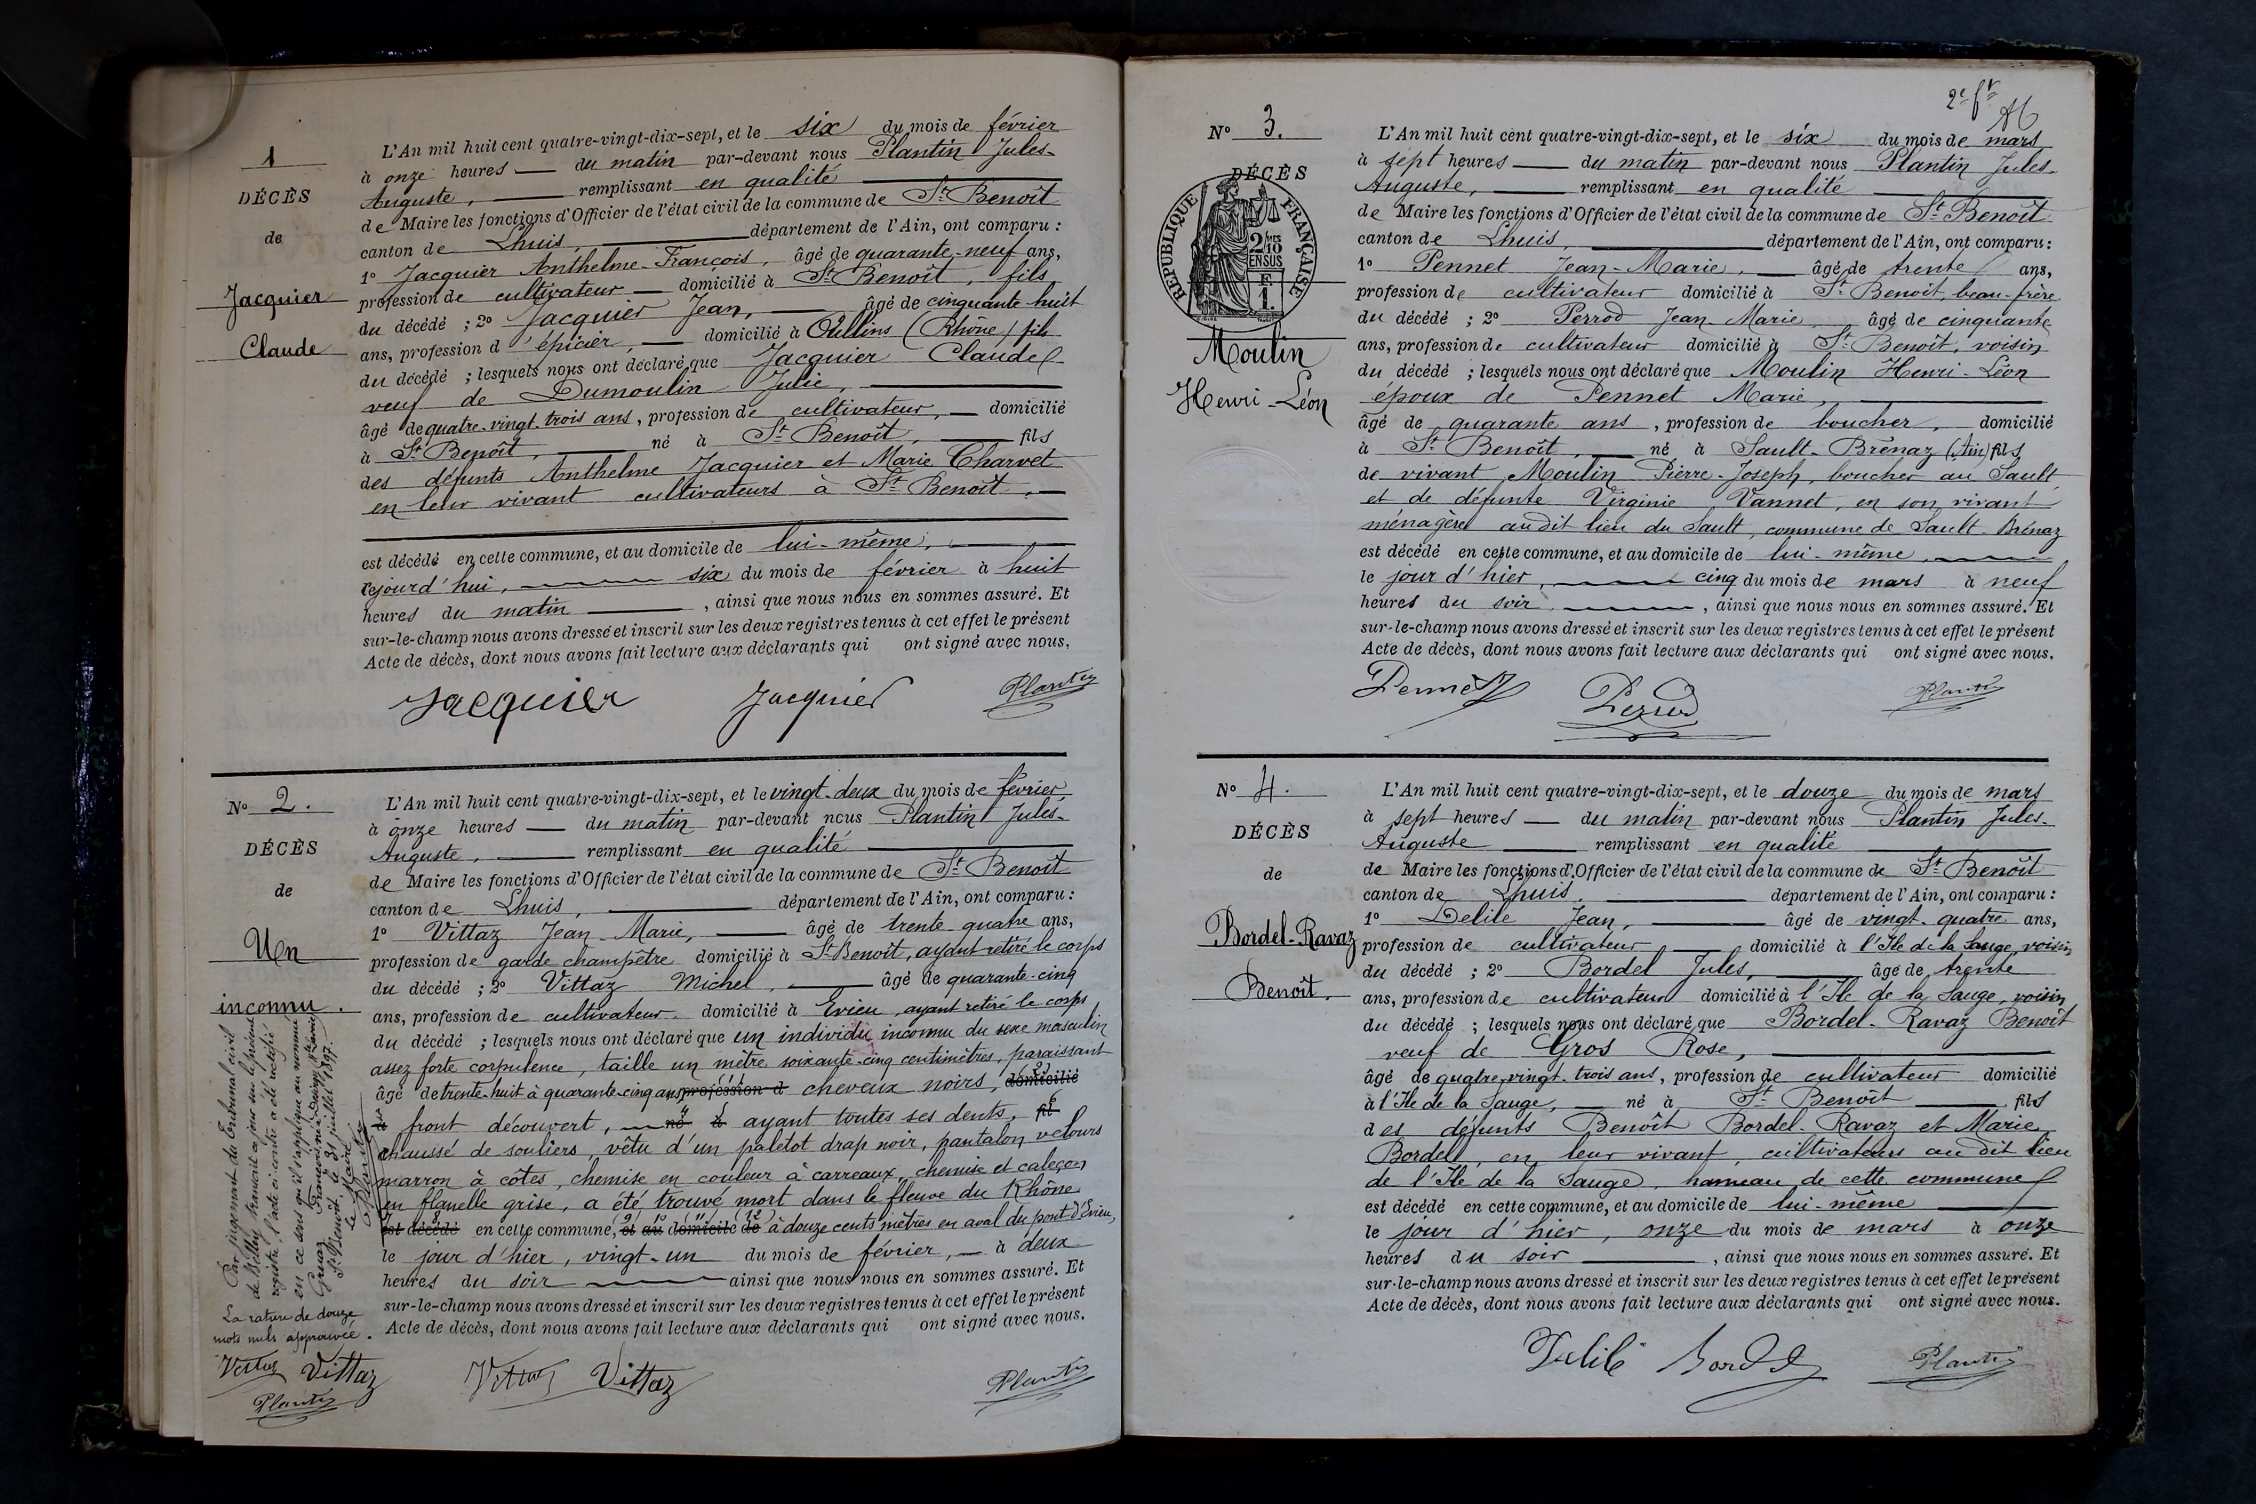 1
DÉCÈS
de
Jacquier
Claude
L'An mil huit cent quatre-vingt-dix-sept, et le six du mois de février
à onze heures — du matin par-devant nous Plantin Jules-
Auguste, — remplissant en qualité
de Maire les fonctions d'Officier de l'état civil de la commune de St Benoît
canton de Lhuis, — département de l'Ain, ont comparu :
1° Jacquier Anthelme-François, âgé de quarante-neuf ans,
profession de cultivateur — domicilié à St Benoît, fils
du décédé ; 2° Jacquier Jean, — âgé de cinquante huit
ans, profession d'épicier, — domicilié à Oullins (Rhône) fils
du décédé ; lesquels nous ont déclaré que Jacquier Claude
veuf de Dumoulin Julie, —
âgé de quatre-vingt-trois ans, profession de cultivateur, — domicilié
à St Benoît, — né à St Benoît, — fils
des défunts Anthelme Jacquier et Marie Charvet
en leur vivant cultivateurs à St Benoît, —
est décédé en cette commune, et au domicile de lui-même, —
cejourd'hui, — six du mois de février à huit
heures du matin — , ainsi que nous nous en sommes assuré. Et
sur-le-champ nous avons dressé et inscrit sur les deux registres tenus à cet effet le présent
Acte de décès, dont nous avons fait lecture aux déclarants qui ont signé avec nous.
Jacquier Jacquier Plantin
N° 2.
DÉCÈS
de
Un
inconnu.
L'An mil huit cent quatre-vingt-dix-sept, et le vingt-deux du mois de février
à onze heures — du matin par-devant nous Plantin Jules-
Auguste, — remplissant en qualité —
de Maire les fonctions d'Officier de l'état civil de la commune de St Benoît
canton de Lhuis, — département de l'Ain, ont comparu :
1° Vittaz Jean-Marie, — âgé de trente-quatre ans,
profession de garde champêtre domicilié à St Benoît, ayant retiré le corps
du décédé ; 2° Vittaz Michel, — âgé de quarante-cinq
ans, profession de cultivateur domicilié à Evieu, ayant retiré le corps
du décédé ; lesquels nous ont déclaré que un individu inconnu du sexe masculin
assez forte corpulence, taille un mètre soixante-cinq centimètres, paraissant
âgé de trente-huit à quarante-cinq ans profession d cheveux noirs, domicilié
à front découvert, — né à ayant toutes ses dents, fil
chaussé de souliers, vêtu d'un paletot drap noir, pantalon velours
marron à côtes, chemise en couleur à carreaux, chemise et caleçon
en flanelle grise, a été trouvé mort dans le fleuve du Rhône
est décédé en cette commune, et au domicile de à douze cents mètres en aval du pont d'Evieu,
le jour d'hier, vingt-un du mois de février, — à deux
heures du soir — ainsi que nous nous en sommes assuré. Et
sur-le-champ nous avons dressé et inscrit sur les deux registres tenus à cet effet le présent
Acte de décès, dont nous avons fait lecture aux déclarants qui ont signé avec nous.
Par jugement du Tribunal civil
de Belley transcrit ce jour sur le présent
registre, l'acte ci-contre a été rectifié
en ce sens qu'il s'applique au nommé
St Benoît, le 31 juillet 1897.
Le Maire
Plantin
La rature de douze
mots nuls approuvée.
Vittaz Vittaz
Plantin
Vittaz Vittaz Plantin
N° 3.
DÉCÈS
RÉPUBLIQUE FRANÇAISE
2/10 EN SUS
F
1.
Moulin
Henri-Léon
L'An mil huit cent quatre-vingt-dix-sept, et le six du mois de mars
à sept heures — du matin par-devant nous Plantin Jules-
Auguste, — remplissant en qualité —
de Maire les fonctions d'Officier de l'état civil de la commune de St Benoît
canton de Lhuis, — département de l'Ain, ont comparu :
1° Pennet Jean-Marie, — âgé de trente ans,
profession de cultivateur domicilié à St Benoît, beau-frère
du décédé ; 2° Perrod Jean-Marie, âgé de cinquante
ans, profession de cultivateur domicilié à St Benoît, voisin
du décédé ; lesquels nous ont déclaré que Moulin Henri-Léon
époux de Pennet Marie, —
âgé de quarante ans, profession de boucher, domicilié
à St Benoît, — né à Sault-Brénaz (Ain) fils
de vivant Moulin Pierre-Joseph, boucher au Sault
et de défunte Virginie Vannet, en son vivant
ménagère audit lieu du Sault, commune de Sault-Brénaz
est décédé en cette commune, et au domicile de lui-même, —
le jour d'hier, — cinq du mois de mars à neuf
heures du soir — , ainsi que nous nous en sommes assuré. Et
sur-le-champ nous avons dressé et inscrit sur les deux registres tenus à cet effet le présent
Acte de décès, dont nous avons fait lecture aux déclarants qui ont signé avec nous.
Pennet Perrod Plantin
N° 4.
DÉCÈS
de
Bordel-Ravaz
Benoît.
L'An mil huit cent quatre-vingt-dix-sept, et le douze du mois de mars
à sept heures — du matin par-devant nous Plantin Jules-
Auguste — remplissant en qualité —
de Maire les fonctions d'Officier de l'état civil de la commune de St Benoît
canton de Lhuis, — département de l'Ain, ont comparu :
1° Delile Jean, — âgé de vingt-quatre ans,
profession de cultivateur — domicilié à l'Ile de la Sauge, voisin
du décédé ; 2° Bordel Jules, — âgé de trente
ans, profession de cultivateur domicilié à l'Ile de la Sauge, voisin
du décédé ; lesquels nous ont déclaré que Bordel-Ravaz Benoît
veuf de Gros Rose, —
âgé de quatre-vingt-trois ans, profession de cultivateur domicilié
à l'Ile de la Sauge, — né à St Benoît — fils
des défunts Benoît Bordel-Ravaz et Marie
Bordel, en leur vivant, cultivateurs au dit lieu
de l'Ile de la Sauge, hameau de cette commune
est décédé en cette commune, et au domicile de lui-même —
le jour d'hier, onze du mois de mars à onze
heures du soir — , ainsi que nous nous en sommes assuré. Et
sur-le-champ nous avons dressé et inscrit sur les deux registres tenus à cet effet le présent
Acte de décès, dont nous avons fait lecture aux déclarants qui ont signé avec nous.
Delile Bordel Plantin